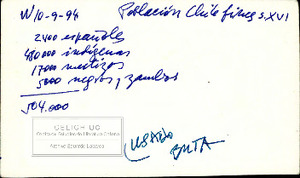 W/0-9-94 Población Chile fines s.XVI
2400 españoles
480000 indígenas
17000 mestizos
5000 negros y zambos
504.000
CELICH UC
USADO BNTA